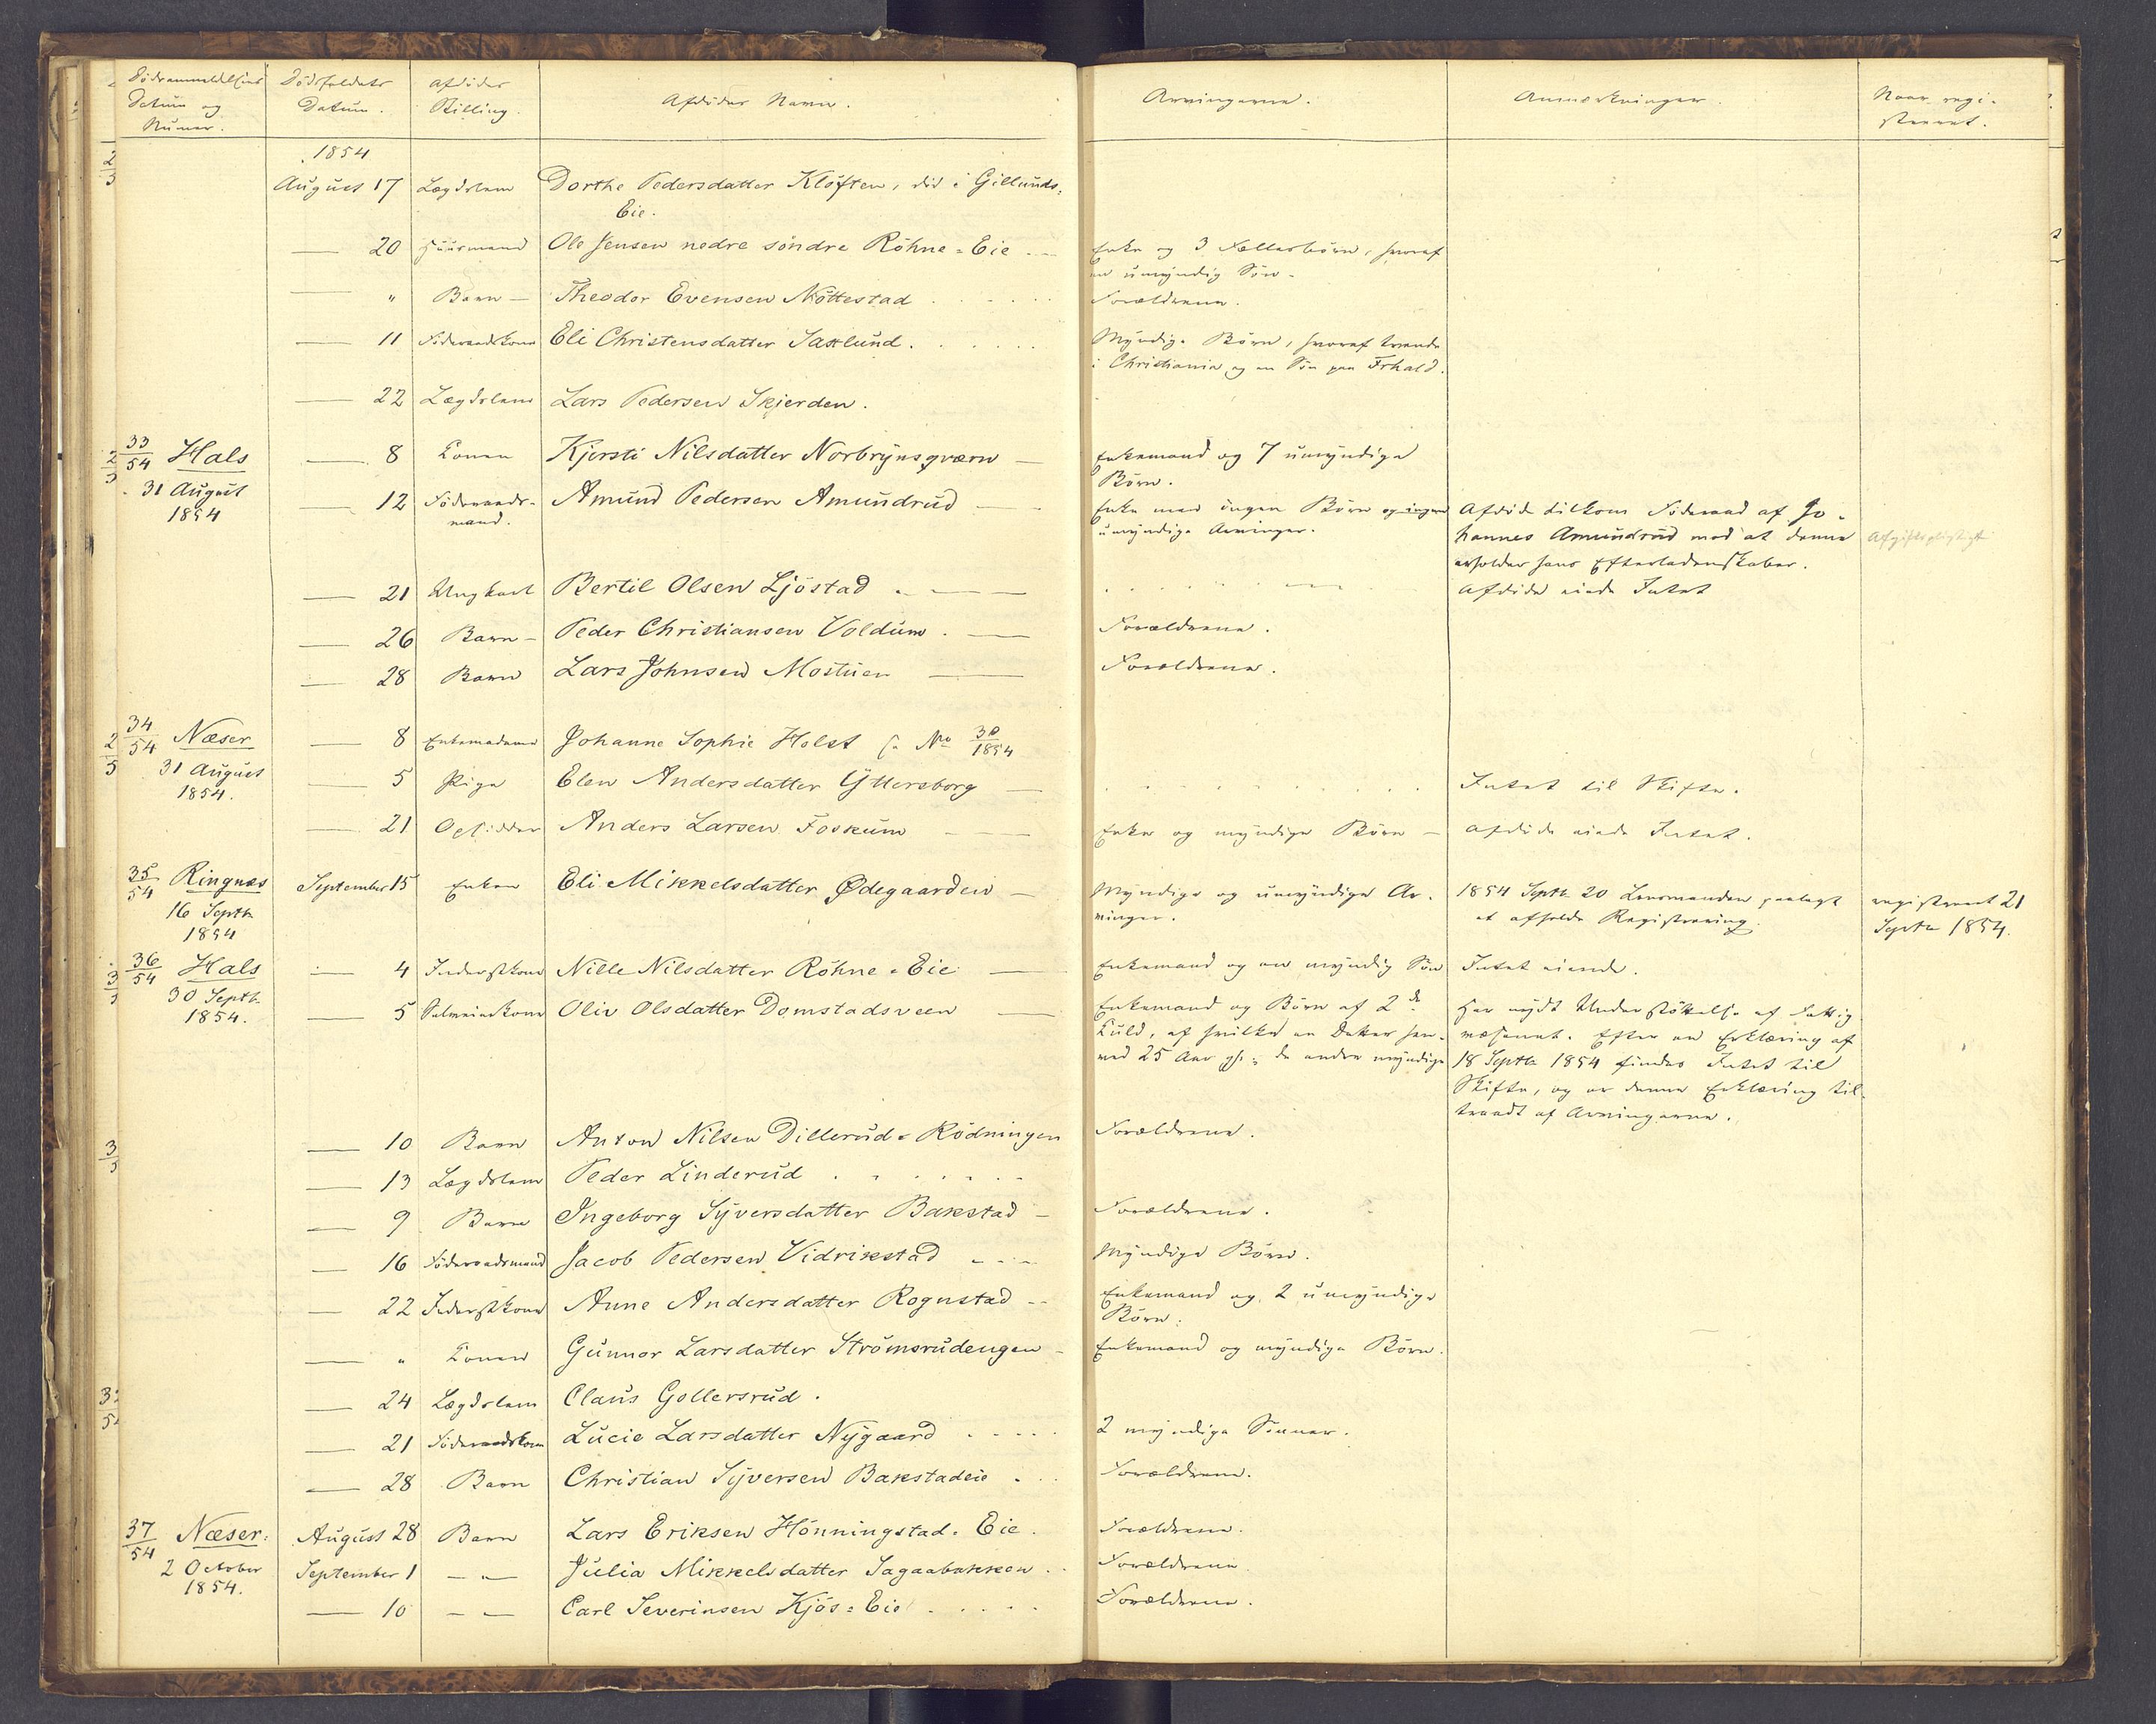 Dödsanmeldelsens Datum og Numer.
Dödsfaldets Datum.
Afdödes Stilling.
Afdödes Navn.
Arvingerne.
Anmærkninger.
Naar registreret.
1854
August 17 Lægdslem Dorthe Pedersdatter Klöften, död i Gillunds-
Eie.
— 20 Huusmand Ole Jensen nedre söndre Röhne-Eie Enke og 3 Fællesbörn, hvoraf
en umyndig Sön.
— " Barn — Theodor Evensen Nöttestad Forældrene.
— 11 Föderaadskone Eli Christensdatter Saxlund. Myndige Börn, hvoraf tvende
i Christiania og en Sön paa Frhald.
— 22 Lægdslem Lars Pedersen Skjerden.
33/54 Hals — 8 Konen Kjersti Nilsdatter Norbrynsqværn — Enkemand og 7 umyndige
Börn.
31 August
1854
— 12 Föderaads-
mand. Amund Pedersen Amundrud — Enke men ingen Börn og ingen
umyndige Arvinger.
Afdöde tilkom Föderaad af Jo-
hannes Amundrud mod at denne
erholder hans Efterladenskaber.
Afgiftspligtigt
— 21 Ungkarl Bertil Olsen Ljöstad — Afdöde eiede Intet
— 26 Barn — Peder Christiansen Voldum. — Forældrene.
— 28 Barn Lars Johnsen Mostuen — Forældrene.
34/54 Næser — 8 Enkemadame Johanne Sophie Holst No 30/1854
31 August
1854.
— 5 Pige Elen Andersdatter Yttersborg — Intet til Skifte.
— 21 Opsidder Anders Larsen Foskum — Enke og myndige Börn — Afdöde eiede Intet.
35/54 Ringnæs September 15 Enken Eli Mikkelsdatter Ödegaarden — Myndige og umyndige Ar-
vinger.
16 Septb
1854
1854 Septb 20 Lensmanden paalagt
at afholde Registrering.
registreret 21
Septb 1854.
36/54 Hals — 4 Inderstkone Nille Nilsdatter Röhne-Eie — Enkemand og en myndig Sön Intet eiende.
30 Septb
1854.
— 5 Oliv Olsdatter Domstadsveen — Enkemand og Börn af 2de
Kuld, af hvilke en Datter hen-
ved 25 Aar gl.; de andre myndige
Har nydt Understöttelse af Fattig-
væsenet. Efter en Erklæring af
18 Septb 1854 findes Intet til
Skifte, og er denne Erklæring til-
traadt af Arvingerne.
— 10 Barn Anton Nilsen Dillerud-Rödningen Forældrene.
— 13 Lægdslem Peder Linderud
— 9 Barn Ingeborg Syversdatter Bakstad — Forældrene.
— 16 Föderaadsmand Jacob Pedersen Vidrikstad Myndige Börn.
— 22 Inderstkone Anne Andersdatter Rognstad — Enkemand og 2 umyndige
Börn.
— " Konen Gunnor Larsdatter Strömsrudengen — Enkemand og myndige Börn.
— 24 Lægdslem Claus Gollersrud.
— 21 Föderaadskone Lucie Larsdatter Nygaard 2 myndige Sönner.
— 28 Barn Christian Syversen Bakstadeie Forældrene.
37/54 Næser: August 28 Barn Lars Eriksen Hönningstad-Eie. Forældrene.
2 October
1854.
September 1 — " — Julia Mikkelsdatter Sagaabakken Forældrene
— 10 — " — Carl Severinsen Kjös-Eie Forældrene.